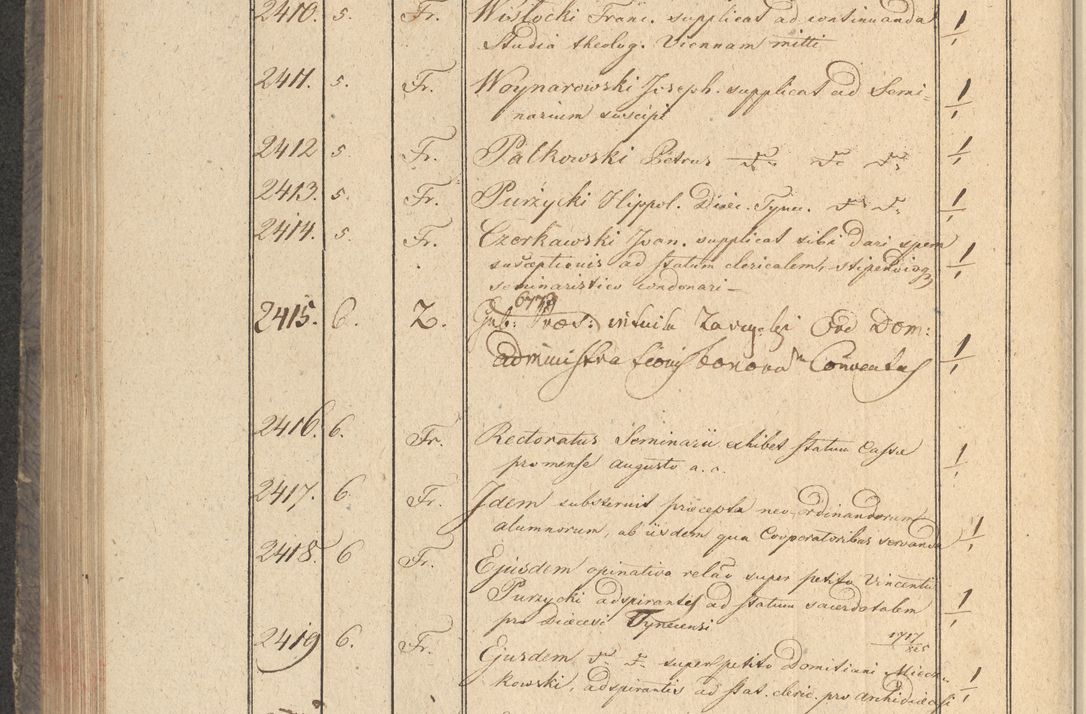 2410. 5. Fr. Wisłocki Franc. supplicat ad continuanda 1/1
Studia theolog. Viennam mitti
2411. 5. Fr. Woynarowski Joseph. supplicat ad Semi- 1/1
narium suscipi
2412 5. Fr. Palkowski Petrus 1/1
2413. 5. Fr. Purzycki Hippol. Diœc. Tyne. 1/1
2414. 5. Fr. Czerkawski Joan. supplicat sibi dari spem 1/1
susceptionis ad statum clericalem,
seminaristico condonari
2415. 6. Z. Gub: Præs: Dom: 1/1
administrationis bonorum Conventus
2416. 6. Fr. Rectoratus Seminarii exhibet statum Cassæ 1/1
pro mense augusto a. c.
2417. 6. Fr. Idem substernit præcepta neo-ordinandorum 1/1
alumnorum, ab iisdem qua Cooperatoribus servanda
2418. 6 Fr. Ejusdem opinativa relāo super petito Vincentii 1/1
Purzycki adspirantis ad statum sacerdotalem
pro Diœcesi Tynecensi
1717/825
2419 6. Fr. Ejusdem super petito Domitiani Miecz- 1/1
kowski, adspirantis ad stat. cleric. pro Archidiœcesi